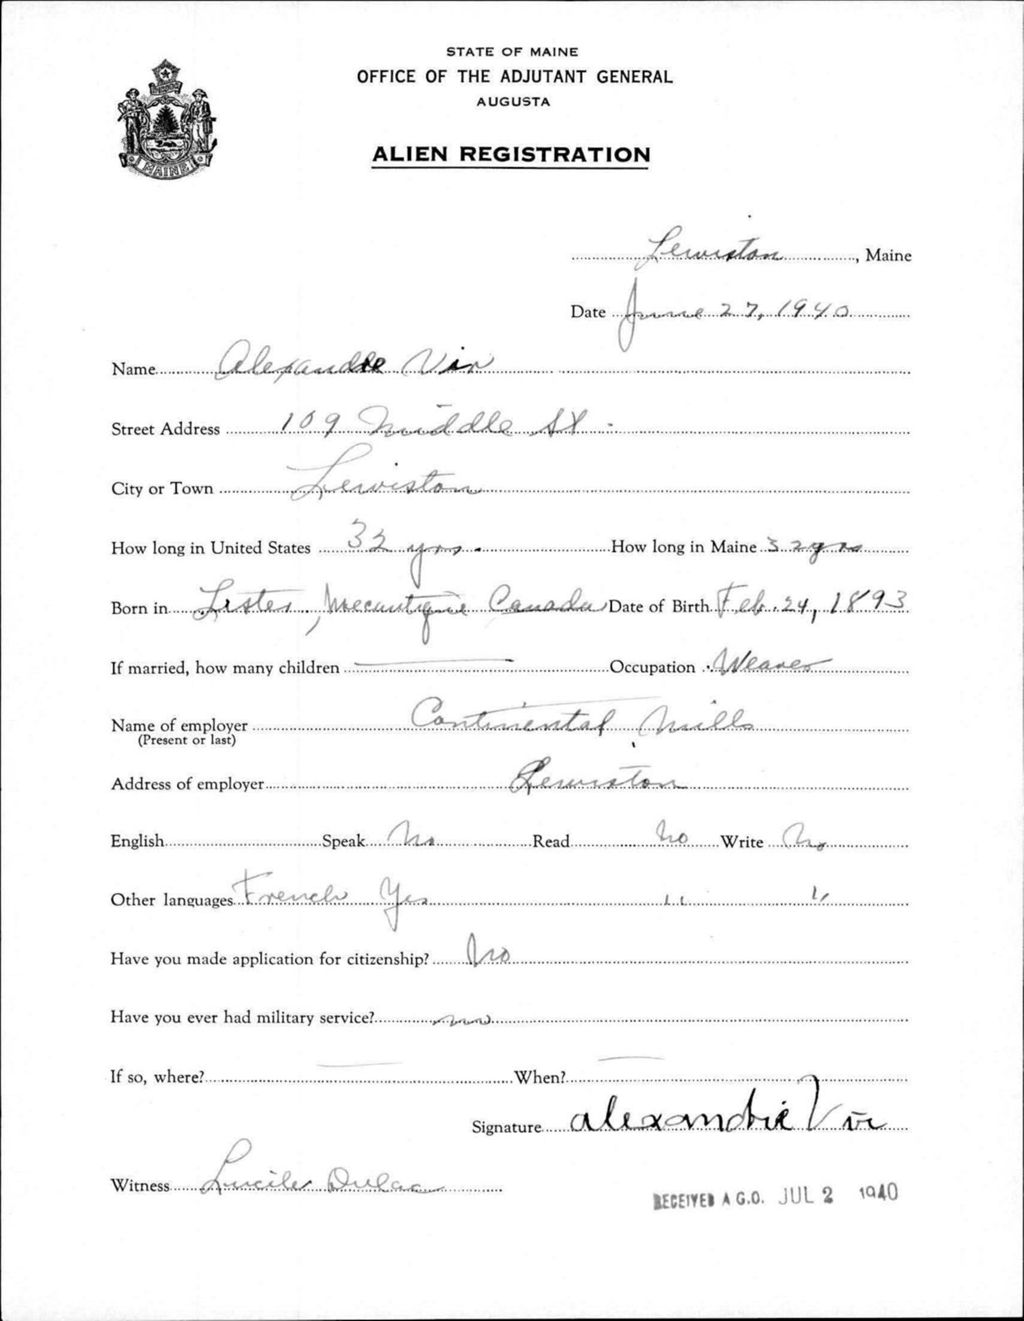 STATE OF MAINE
OFFICE OF THE ADJUTANT GENERAL
AUGUSTA
MAINE
ALIEN REGISTRATION
Lewiston, Maine
Date June 27, 1940
Name Alexandre Vir
Street Address 109 Middle St.
City or Town Lewiston
How long in United States 32 yrs. How long in Maine 32 yrs
Born in Lester, Mecantique Canada Date of Birth Feb. 24, 1893
If married, how many children — Occupation Weaver
Name of employer Continental Mills
(Present or last)
Address of employer Lewiston
English Speak No Read No Write No
Other languages French Yes " "
Have you made application for citizenship? No
Have you ever had military service? no
If so, where? — When? —
Signature alexandre Vir
Witness Lucile Dulac
RECEIVED A.G.O. JUL 2 1940